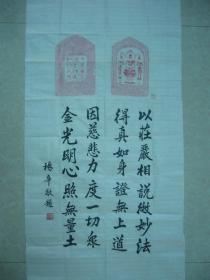 以莊嚴相說微妙法
得真如身證無上道
因慈悲力度一切衆
金光明心照無量土
楊辛敬題